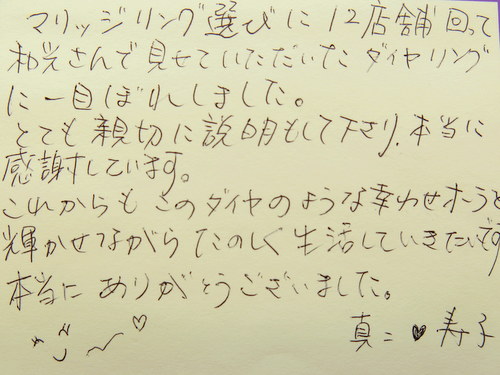 マリッジリング選びに12店舗回って
和光さんで見せていただいた ダイヤリング
に一目ぼれしました。
とても親切に説明もして下さり、本当に
感謝しています。
これからも このダイヤのような幸わせオーラを
輝かせながら たのしく 生活していきたいです
本当に ありがとうございました。
真二 ♥ 寿子